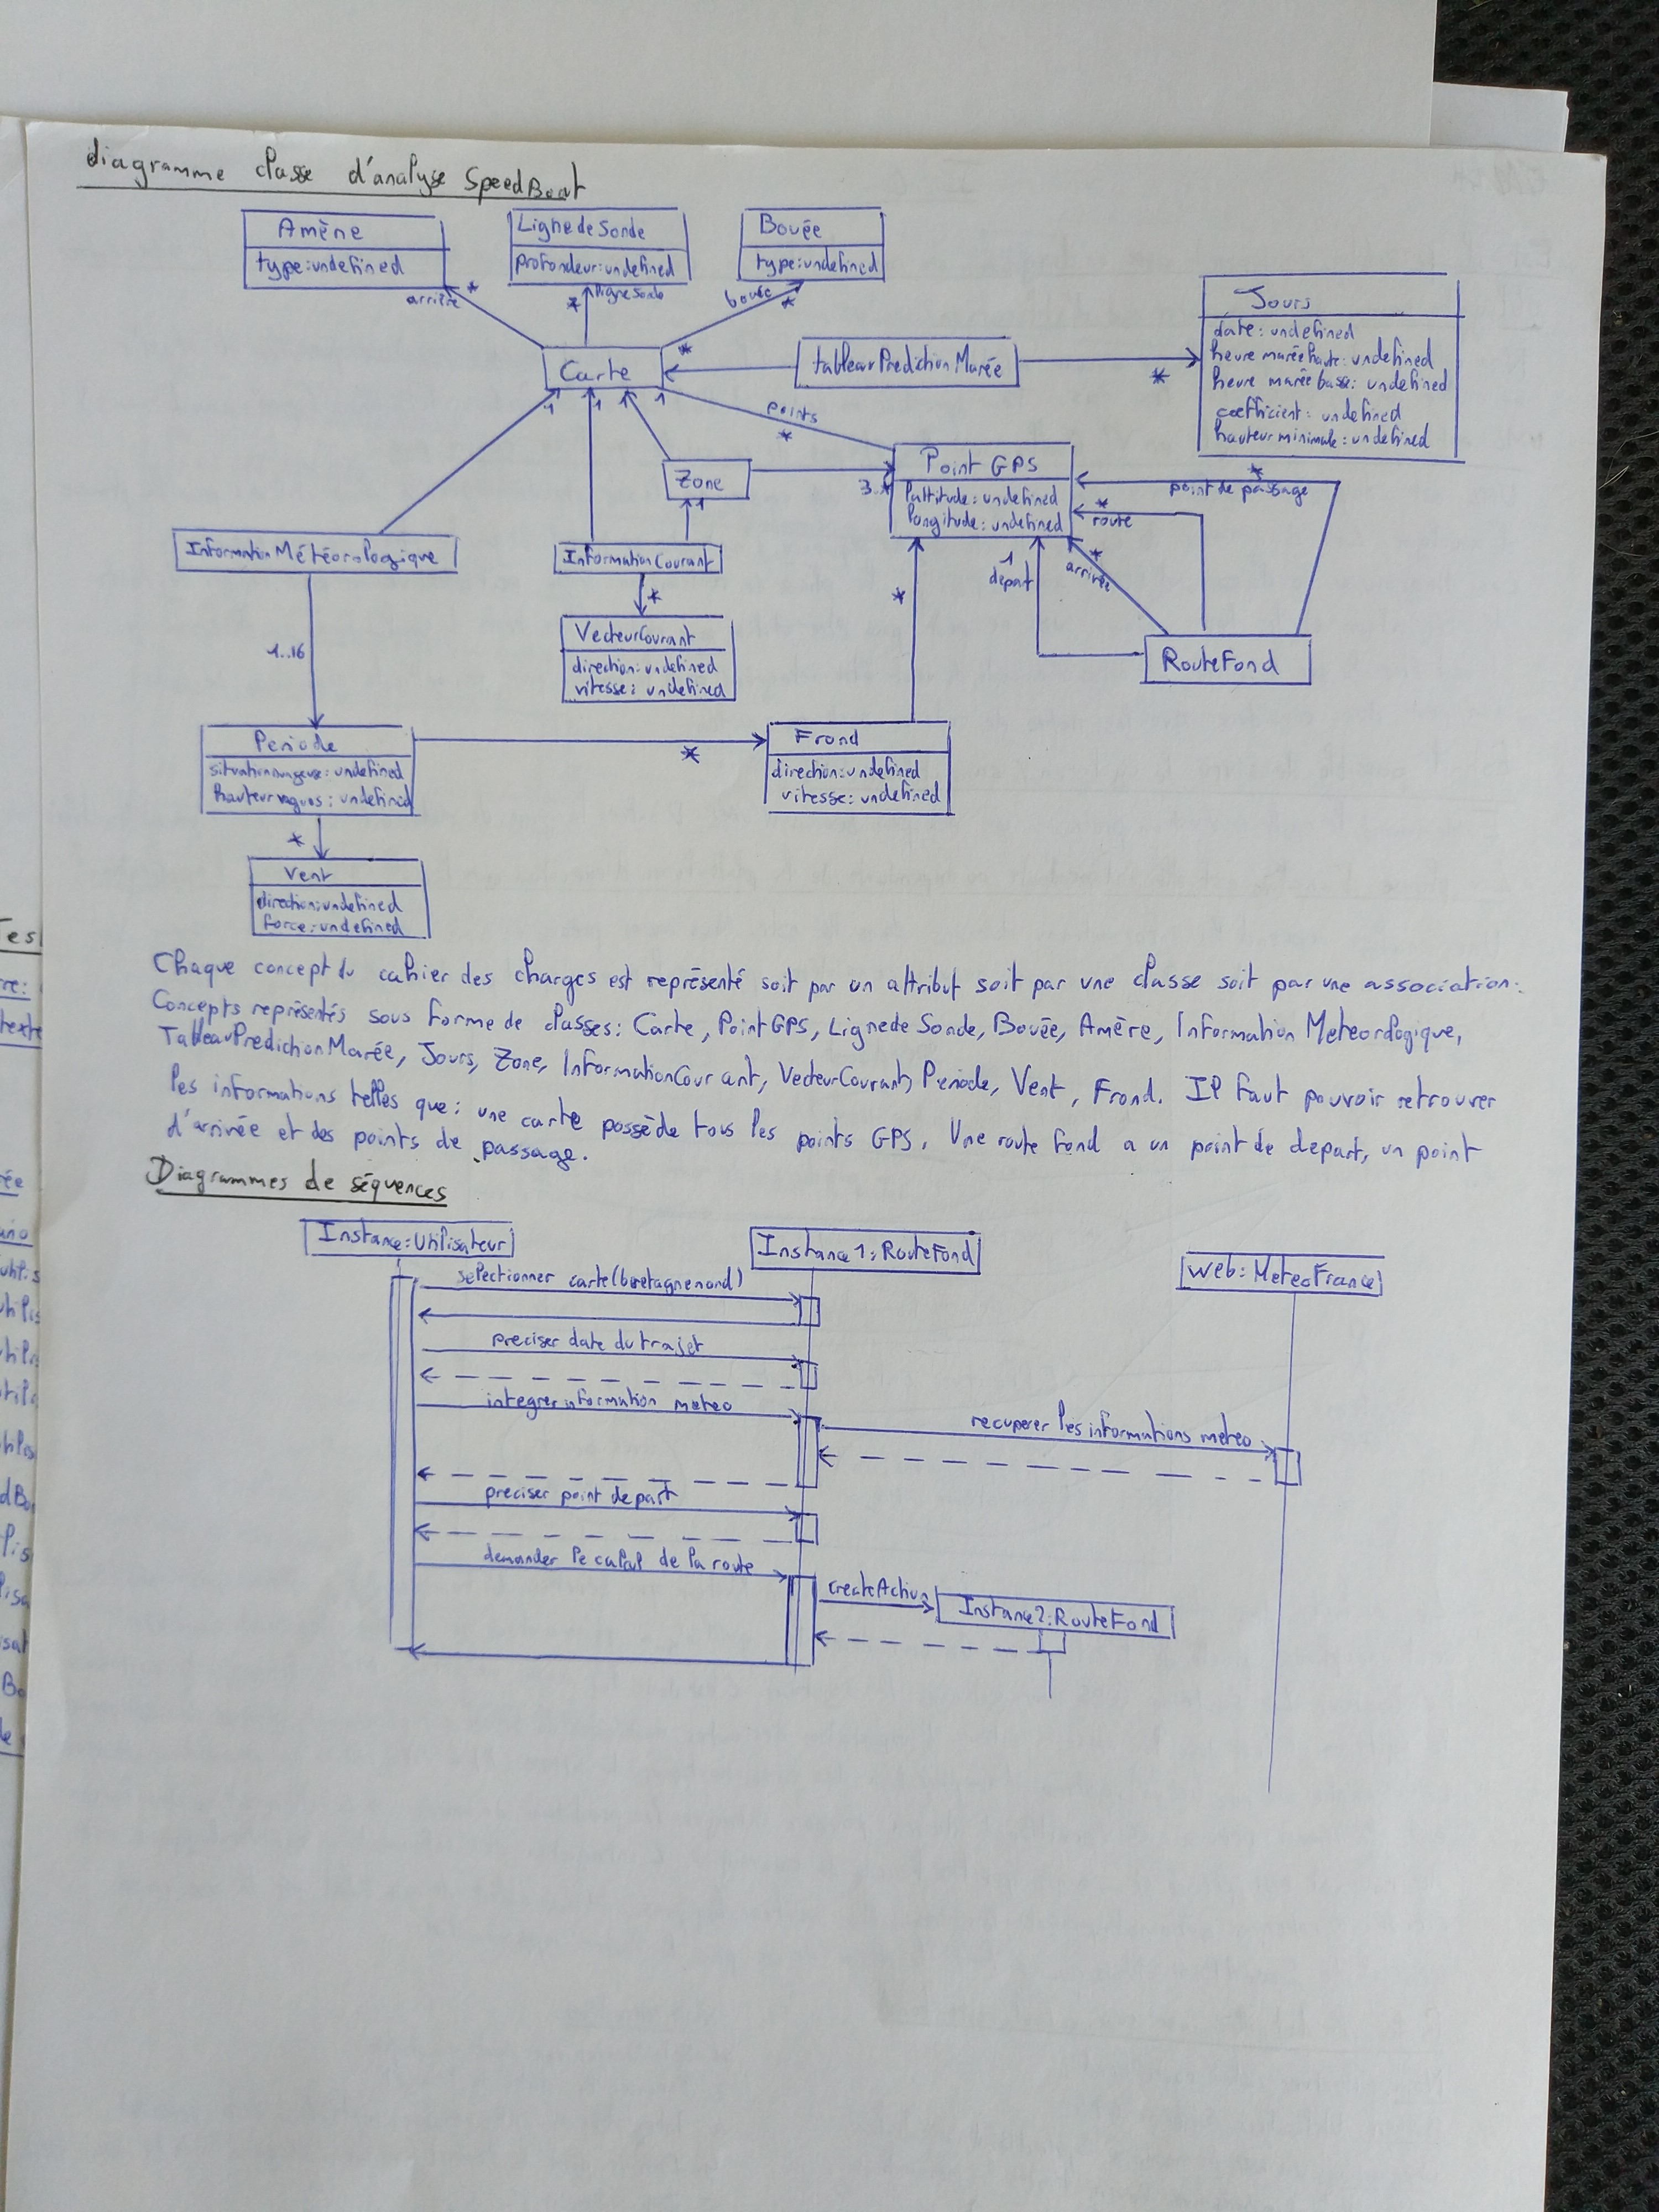 diagramme classe d'analyse SpeedBoat
Amène
type:undefined
LignedeSonde
profondeur:undefined
Bouée
type:undefined
arrière *
* lignesonde
bouée *
Jours
date: undefined
heure marée haute: undefined
heure marée base: undefined
coefficient: undefined
hauteur minimale: undefined
Carte
*
tableauPredictionMarée
*
1 1 1 1
points
*
Zone
1
3..*
Point GPS
lattitude: undefined
longitude: undefined
*
point de passage
*
route
*
arrivée
1
depart
RouteFond
InformationMétéorologique
InformationCourant
*
VecteurCourant
direction:undefined
vitesse: undefined
*
1..16
Periode
: undefined
hauteurvagues: undefined
*
Frond
direction:undefined
vitesse: undefined
*
Vent
direction:undefined
force:undefined
Chaque concept du cahier des charges est représenté soit par un attribut soit par une classe soit par une association.
Concepts représentés sous forme de classes: Carte, PointGPS, Lignede Sonde, Bouée, Amère, Information Meteorologique,
TableauPredictionMarée, Jours, Zone, InformationCourant, VecteurCourant, Periode, Vent, Frond. Il faut pouvoir retrouver
les informations telles que: une carte possède tous les points GPS. Une route fond a un point de depart, un point
d'arrivée et des points de passage.
Diagrammes de séquences
Instance:Utilisateur
Instance1:RouteFond
web:MeteoFrance
selectionner carte(bretagnenord)
preciser date du trajet
integrer information meteo
recuperer les informations meteo
preciser point depart
demander le calcul de la route
createAction
Instance2:RouteFond